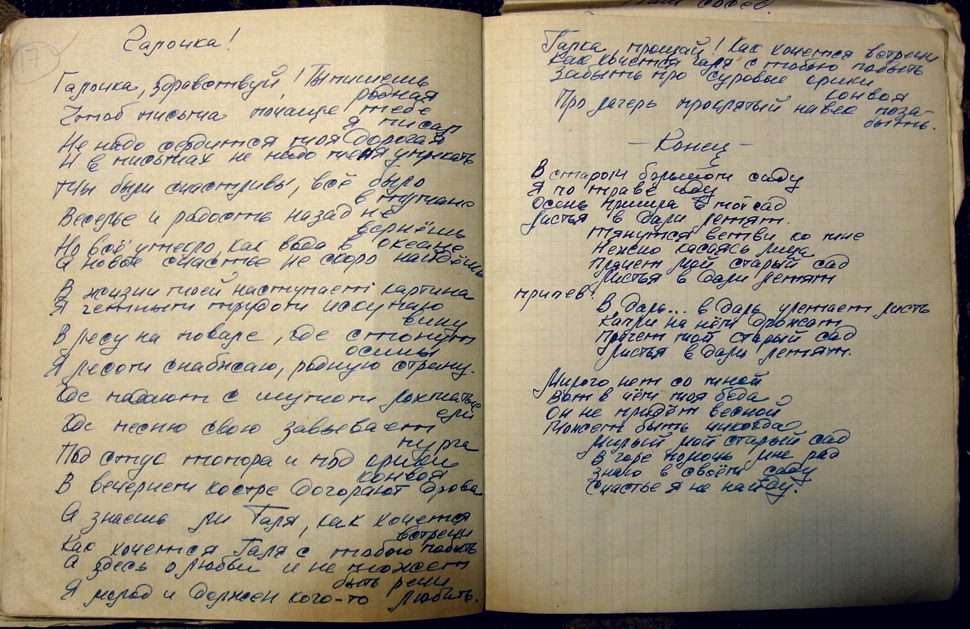 17
Галочка!
Галочка, здравствуй! Ты пишешь
родная
Чтоб письма почаще тебе
я писал
Не надо сердится моя дорогая
И в письмах не надо меня упрекать
Мы были счастливы, всё было
в тумане
Веселье и радость назад не
вернёшь
Но всё утекло, как вода в океане
А новое счастье не скоро найдёшь
В жизни моей наступает картина
Я честным трудом искупаю
вину
В лесу на поваре, где стонут
осины
Я лесом снабжаю, родную страну.
Где падают с шумом лохматые
ели
Где песню свою завывает
пурга
Под стук топора и под крики
конвоя
В вечернем костре догорают дрова
А знаешь ли Галя, как хочется
встречи
Как хочется Галя с тобою побыть
А здесь о любви и не может
быть речи
Я молод и должен кого-то любить.
Галка, прощай! Как хочется встречи
Как хочется Галя с тобою побыть
Забыть про суровые крики
конвоя
Про лагерь проклятый навек поза-
быть.
- Конец -
В старом большом саду
Я по траве иду
Осень пришла в мой сад
Листья в дали летят.
Тянутся ветви ко мне
Нежно касаясь лица
Плачет мой старый сад
Листья в дали летят
припев:
В даль... в даль улетает листь
Капли на нём дрожат
Плачет мой старый сад
Листья в дали летят.
Милого нет со мной
Вот в чём моя беда
Он не придёт весной
Может быть никогда
Милый мой старый сад
В горе помочь мне рад
Знаю в своём саду
Счастье я не найду.